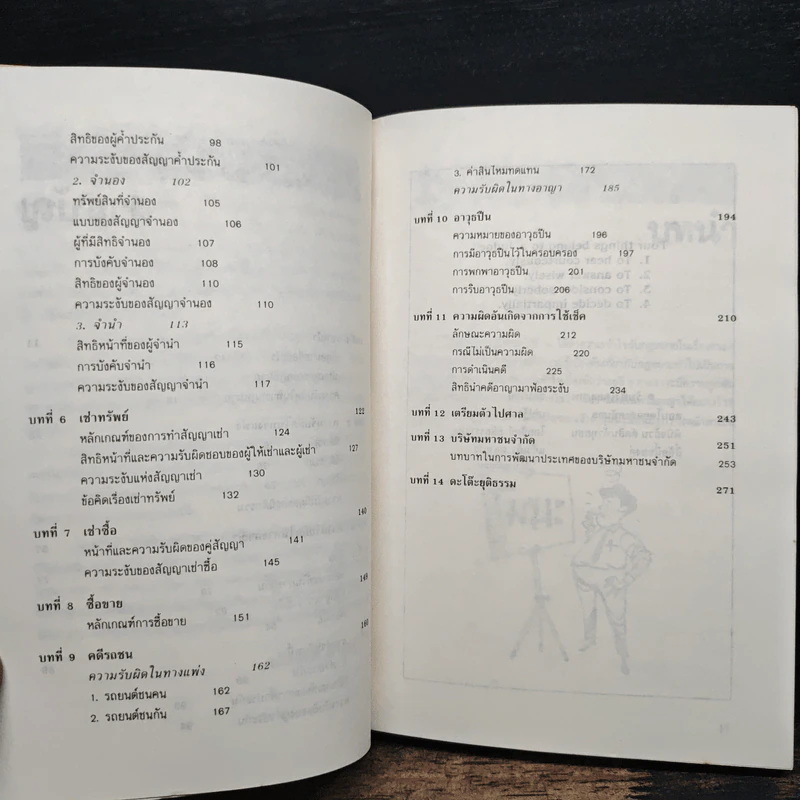 สิทธิของผู้ค้ำประกัน 98
ความระงับของสัญญาค้ำประกัน 101
2. จำนอง 102
ทรัพย์สินที่จำนอง 105
แบบของสัญญาจำนอง 106
ผู้ที่มีสิทธิจำนอง 107
การบังคับจำนอง 108
สิทธิของผู้จำนอง 110
ความระงับของสัญญาจำนอง 110
3. จำนำ 113
สิทธิหน้าที่ของผู้จำนำ 115
การบังคับจำนำ 116
ความระงับของสัญญาจำนำ 117
บทที่ 6 เช่าทรัพย์ 122
หลักเกณฑ์ของการทำสัญญาเช่า 124
สิทธิหน้าที่และความรับผิดชอบของผู้ให้เช่าและผู้เช่า 127
ความระงับแห่งสัญญาเช่า 130
ข้อคิดเรื่องเช่าทรัพย์ 132
บทที่ 7 เช่าซื้อ 140
หน้าที่และความรับผิดของคู่สัญญา 141
ความระงับของสัญญาเช่าซื้อ 145
บทที่ 8 ซื้อขาย 149
หลักเกณฑ์การซื้อขาย 151
บทที่ 9 คดีรถชน 160
ความรับผิดในทางแพ่ง 162
1. รถยนต์ชนคน 162
2. รถยนต์ชนกัน 167
3. ค่าสินไหมทดแทน 172
ความรับผิดในทางอาญา 185
บทที่ 10 อาวุธปืน 194
ความหมายของอาวุธปืน 196
การมีอาวุธปืนไว้ในครอบครอง 197
การพกพาอาวุธปืน 201
การริบอาวุธปืน 206
บทที่ 11 ความผิดอันเกิดจากการใช้เช็ค 210
ลักษณะความผิด 212
กรณีไม่เป็นความผิด 220
การดำเนินคดี 225
สิทธินำคดีอาญามาฟ้องระงับ 234
บทที่ 12 เตรียมตัวไปศาล 243
บทที่ 13 บริษัทมหาชนจำกัด 251
บทบาทในการพัฒนาประเทศของบริษัทมหาชนจำกัด 253
บทที่ 14 ดะโต๊ะยุติธรรม 271